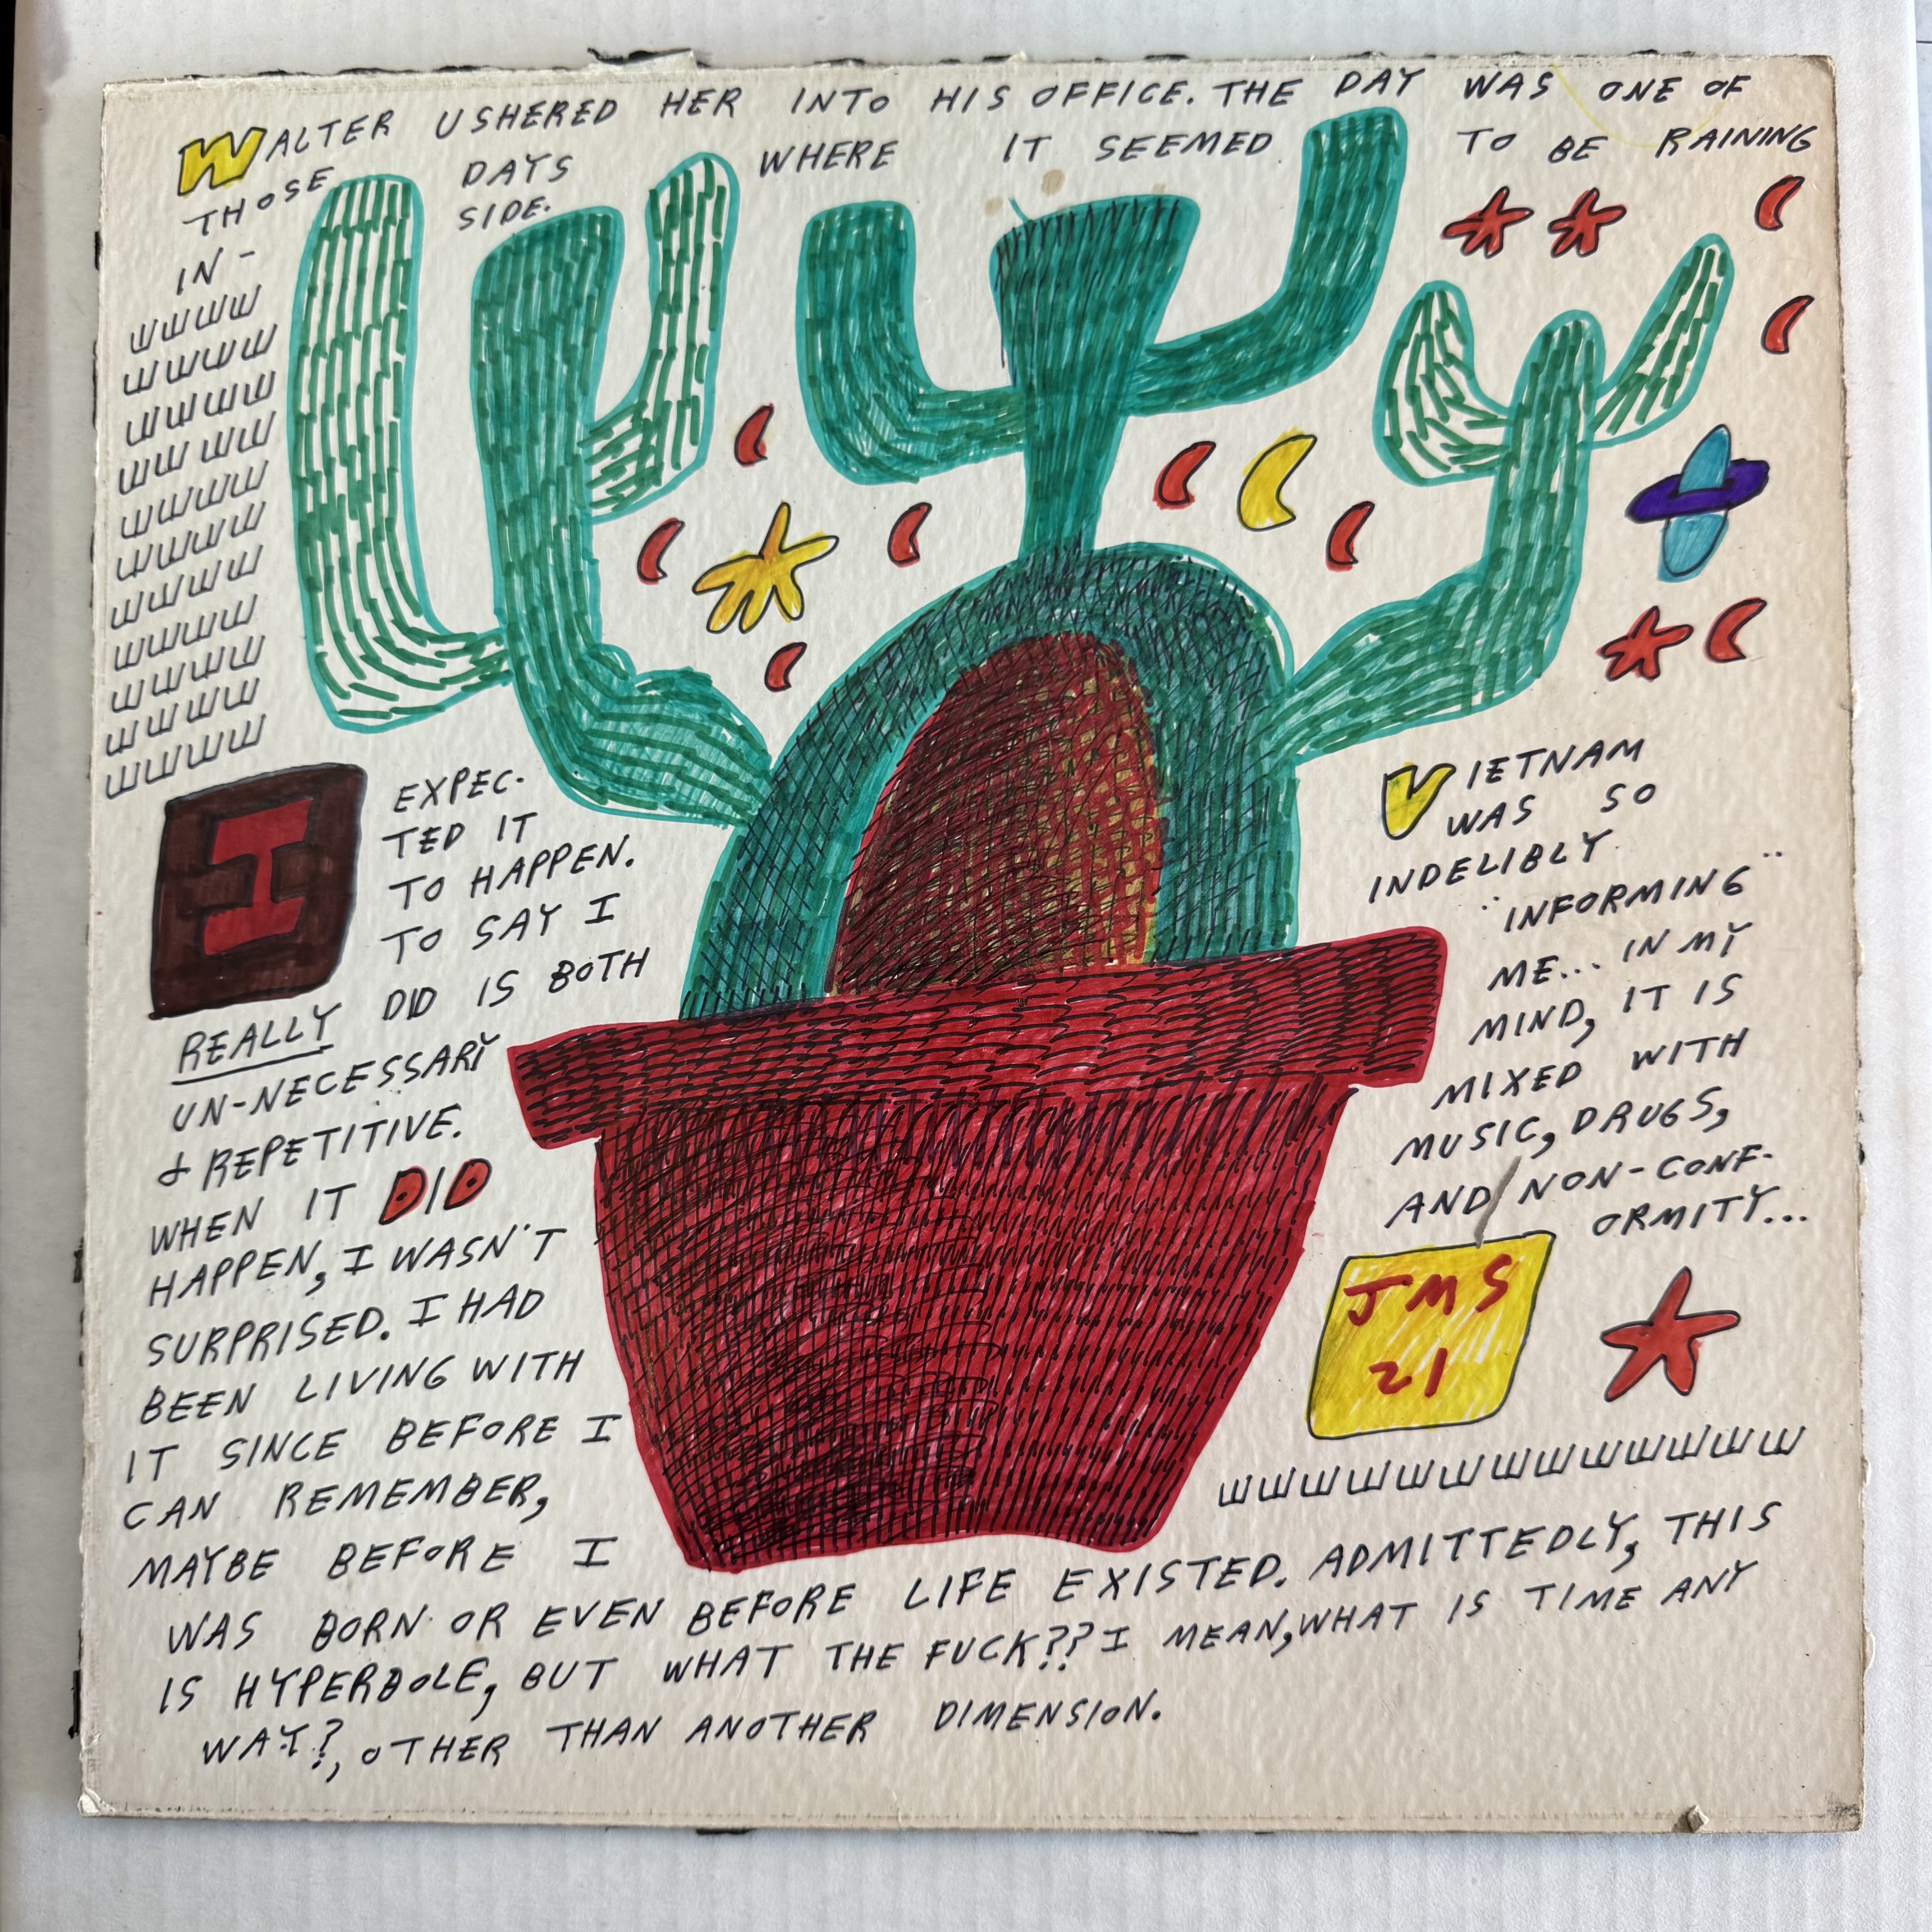 WALTER USHERED HER INTO HIS OFFICE. THE DAY WAS ONE OF
THOSE DAYS WHERE IT SEEMED TO BE RAINING
IN-SIDE.
I EXPEC-
TED IT
TO HAPPEN.
TO SAY I
REALLY DID IS BOTH
UN-NECESSARY
& REPETITIVE.
WHEN IT DID
HAPPEN, I WASN'T
SURPRISED. I HAD
BEEN LIVING WITH
IT SINCE BEFORE I
CAN REMEMBER,
MAYBE BEFORE I
WAS BORN OR EVEN BEFORE LIFE EXISTED. ADMITTEDLY, THIS
IS HYPERBOLE, BUT WHAT THE FUCK?? I MEAN, WHAT IS TIME ANY
WAY?, OTHER THAN ANOTHER DIMENSION.
VIETNAM
WAS SO
INDELIBLY
"INFORMING"
ME... IN MY
MIND, IT IS
MIXED WITH
MUSIC, DRUGS,
AND NON-CONF-
ORMITY...
JMS
21